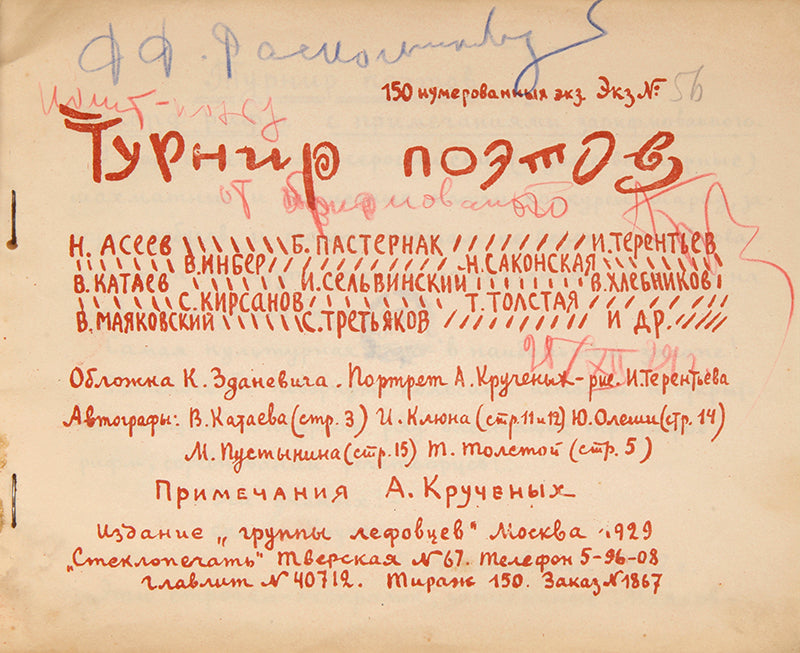 Ф Ф. Раскольникову
150 нумерованных экз. Экз № 56
Турнир поэтов
от
Н. АСЕЕВ Б. ПАСТЕРНАК И. ТЕРЕНТЬЕВ
В. ИНБЕР Н. САКОНСКАЯ
В. КАТАЕВ И. СЕЛЬВИНСКИЙ В. ХЛЕБНИКОВ
С. КИРСАНОВ Т. ТОЛСТАЯ
В. МАЯКОВСКИЙ С. ТРЕТЬЯКОВ И ДР.
Обложка К. Зданевича. Портрет А. Крученых - рис. И. Терентьева
Автографы: В. Катаева (стр. 3) И. Клюна (стр. 11 и 12) Ю. Олеши (стр. 14)
М. Пустынина (стр. 15) Т. Толстой (стр. 5)
Примечания А. Крученых
Издание „группы лефовцев" Москва 1929
„Стеклопечать" Тверская № 67. Телефон 5-96-08
главлит № 40712. Тираж 150. Заказ № 1867